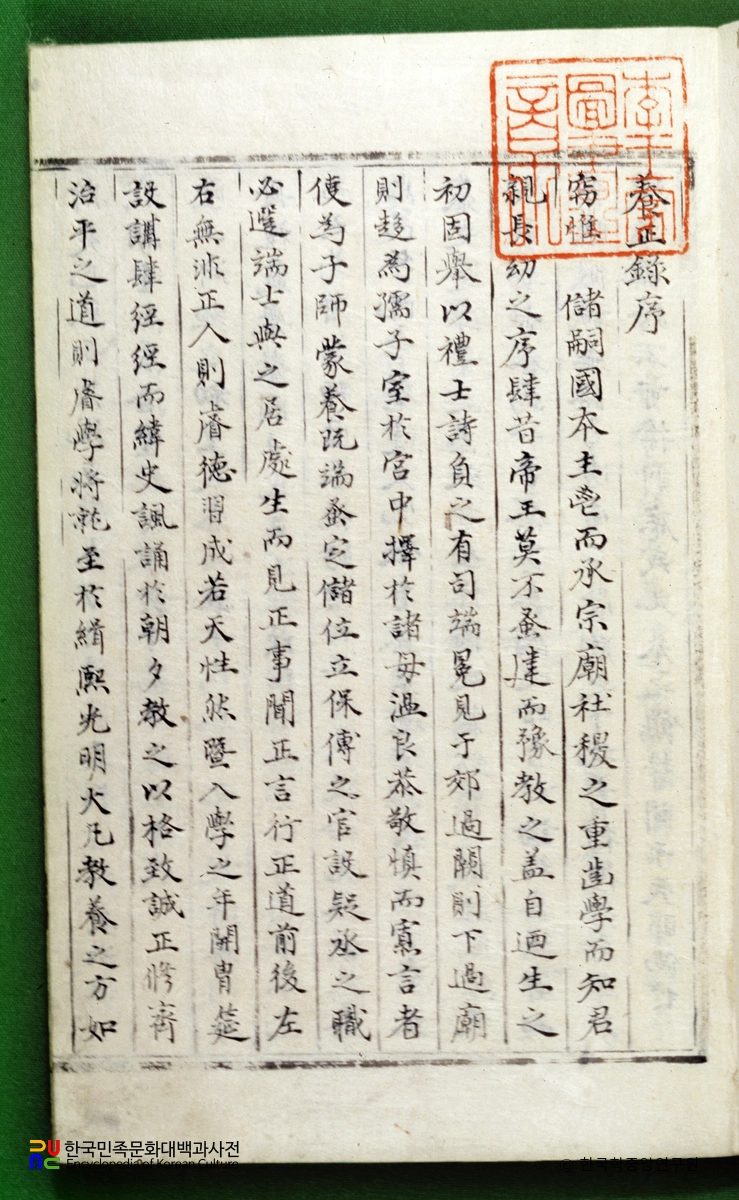 養正錄序
竊惟 儲嗣國本主鬯而承宗廟社稷之重齒學而知君
親長幼之序肆昔帝王莫不蚤建而豫敎之盖自廼生之
初固擧以禮士詩負之有司端冕見于郊過闕則下過廟
則趍爲孺子室於宮中擇於諸母溫良恭敬慎而寡言者
使爲子師蒙養旣端蚤定儲位立保傅之官設疑丞之職
必選端士與之居處生而見正事聞正言行正道前後左
右無非正人則睿德習成若天性然曁入學之年開胄筵
設講肆經經而緯史諷誦於朝夕敎之以格致誠正修齊
治平之道則睿學將就至於緝熙光明大凡敎養之方如
한국민족문화대백과사전
Encyclopedia of Korean Culture
© 한국학중앙연구원